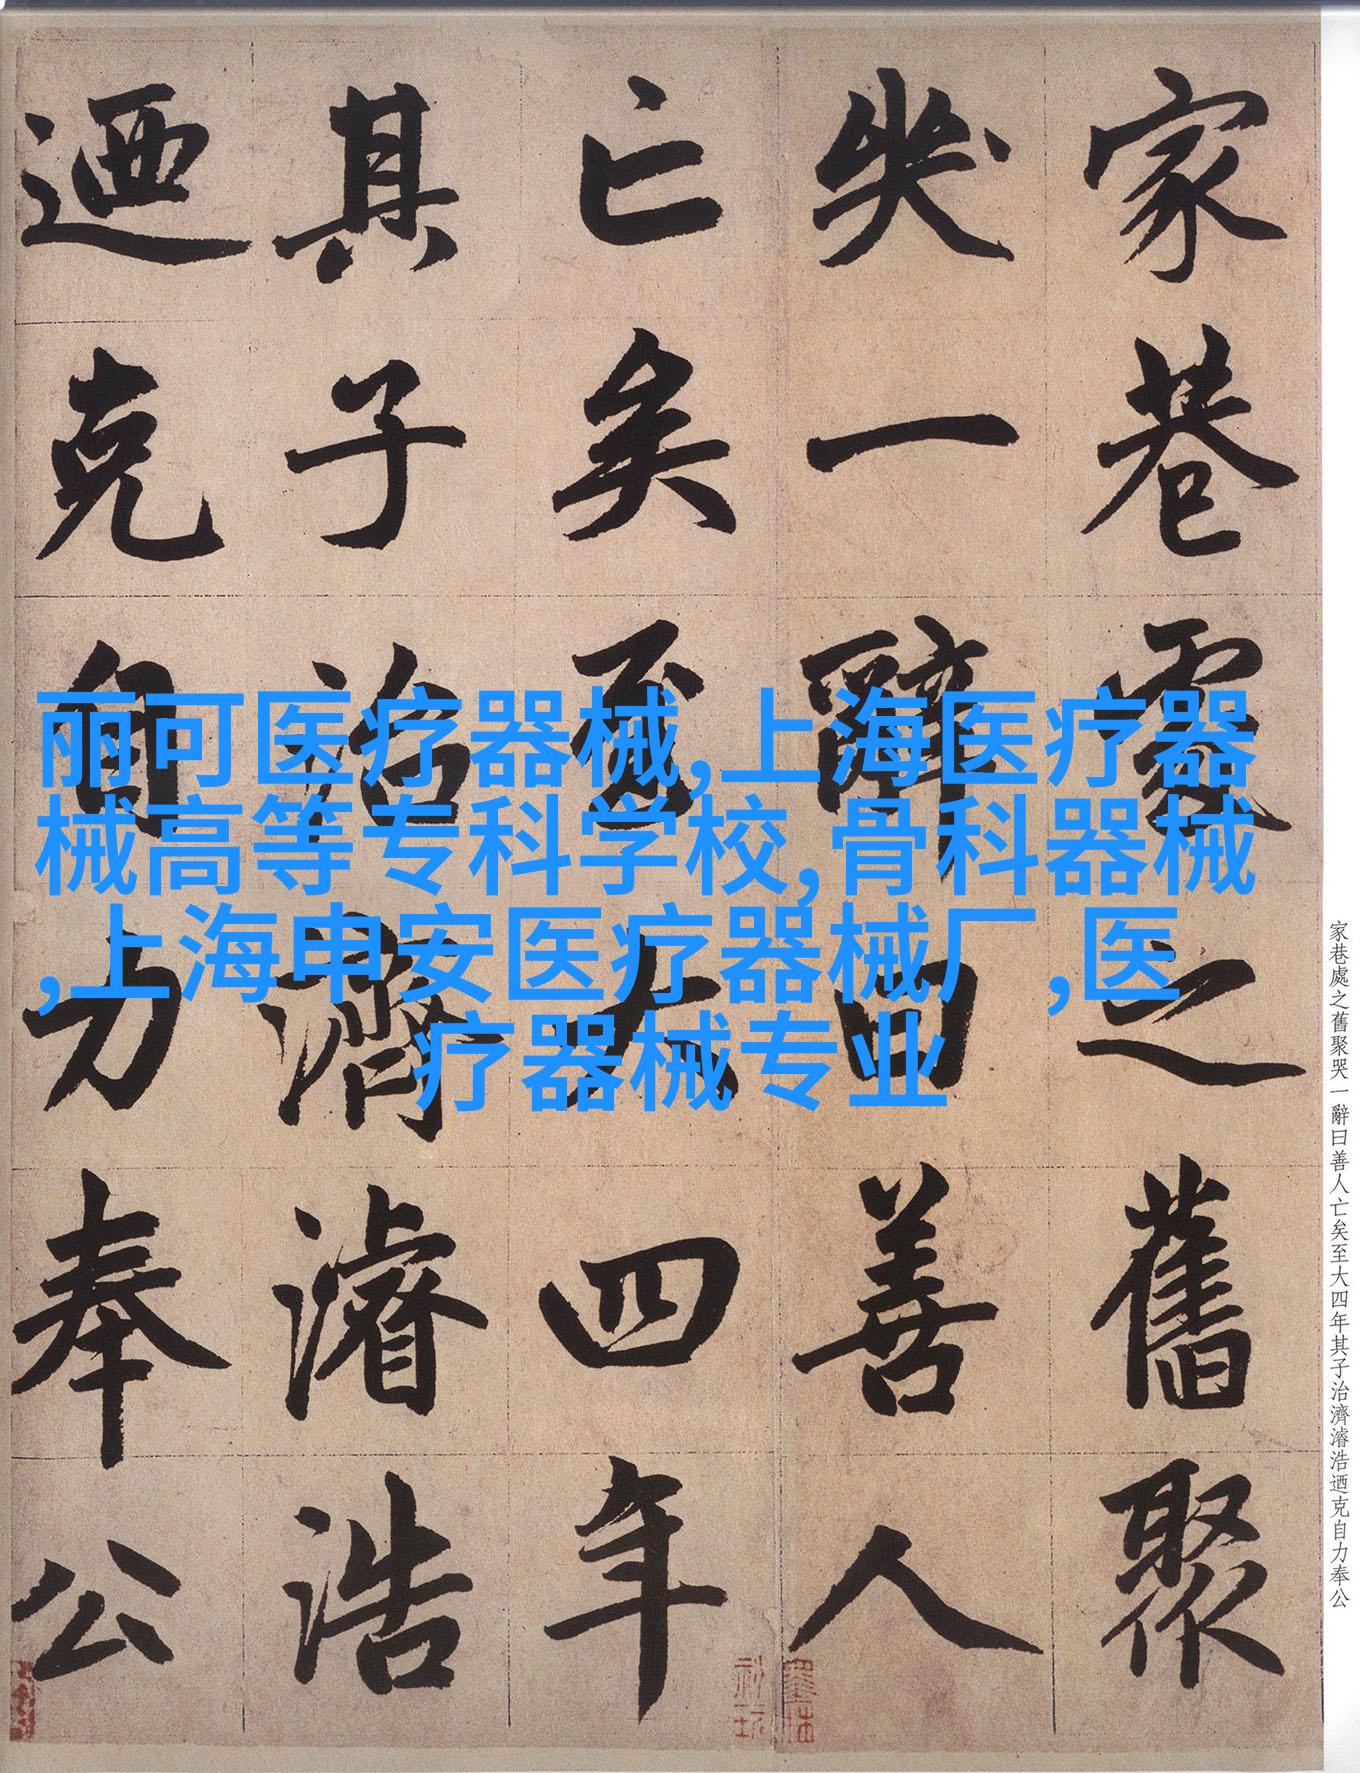 家巷處之舊聚
哭一辭曰善人
亡矣至大四年
其子治濟濬浩
迺克自力奉公
丽可医疗器械,上海医疗器
械高等专科学校,骨科器械
,上海申安医疗器械厂,医
疗器械专业
家巷處之舊聚哭一辭曰善人亡矣至大四年其子治濟濬浩迺克自力奉公